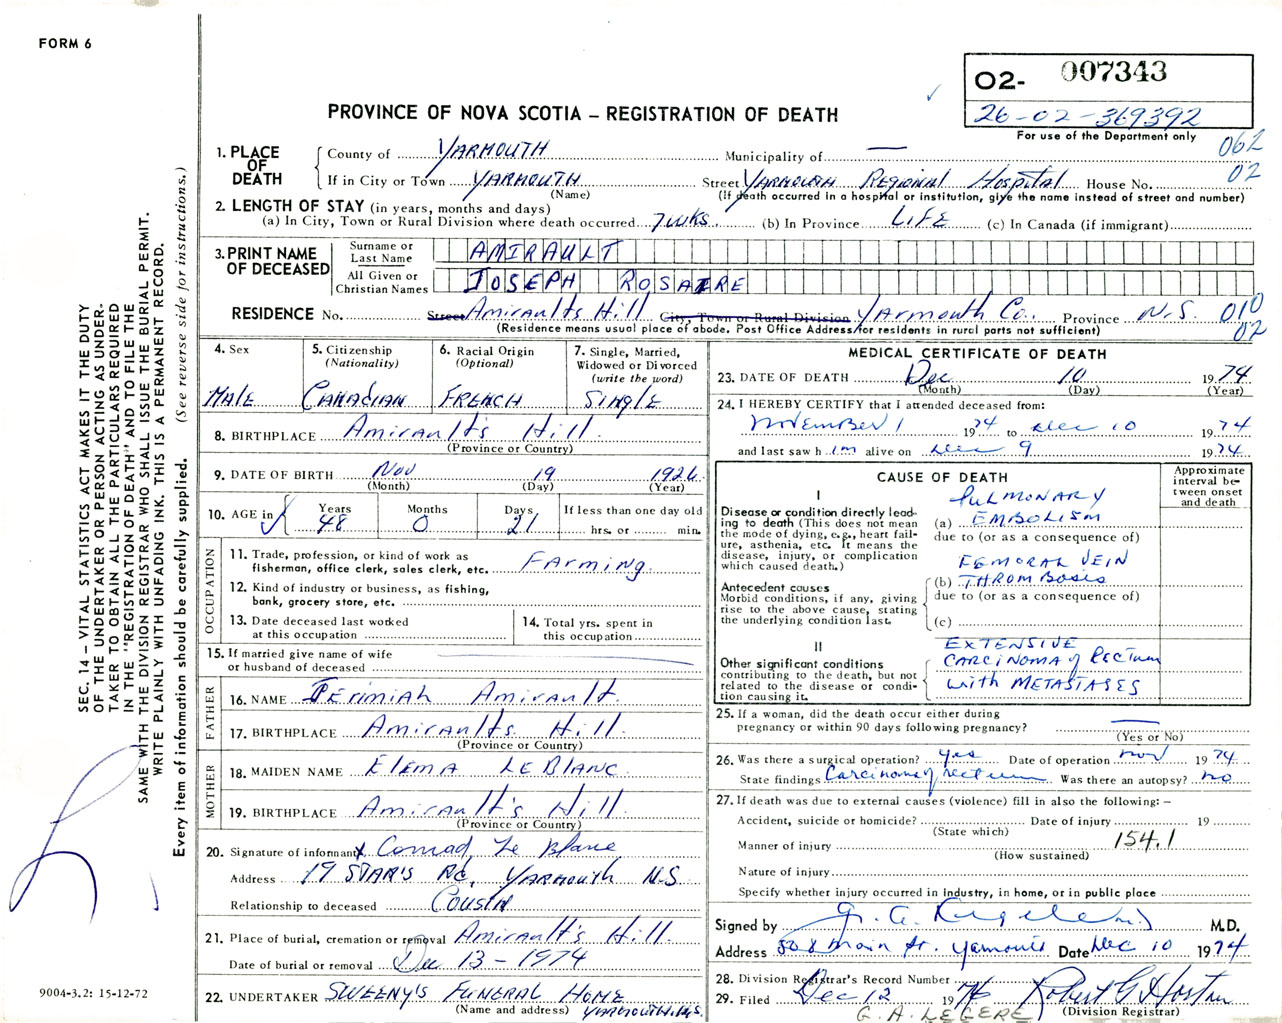 FORM 6
02- 007343
26-02-369392
For use of the Department only
PROVINCE OF NOVA SCOTIA – REGISTRATION OF DEATH
062
02
1. PLACE OF DEATH
County of YARMOUTH Municipality of —
If in City or Town YARMOUTH Street YARMOUTH REGIONAL HOSPITAL House No.
(Name) (If death occurred in a hospital or institution, give the name instead of street and number)
2. LENGTH OF STAY (in years, months and days)
(a) In City, Town or Rural Division where death occurred 7 WKS (b) In Province LIFE (c) In Canada (if immigrant)
3. PRINT NAME OF DECEASED
Surname or Last Name AMIRAULT
All Given or Christian Names JOSEPH ROSAIRE
RESIDENCE No. Street Amiraults Hill City, Town or Rural Division Yarmouth Co. Province N.S. 010
02
(Residence means usual place of abode. Post Office Address for residents in rural parts not sufficient)
4. Sex
MALE
5. Citizenship
(Nationality)
CANADIAN
6. Racial Origin
(Optional)
FRENCH
7. Single, Married,
Widowed or Divorced
(write the word)
SINGLE
8. BIRTHPLACE Amirault's Hill
(Province or Country)
9. DATE OF BIRTH Nov 19 1926
(Month) (Day) (Year)
10. AGE in Years Months Days If less than one day old
48 0 21 hrs. or min.
OCCUPATION
11. Trade, profession, or kind of work as
fisherman, office clerk, sales clerk, etc. FARMING
12. Kind of industry or business, as fishing,
bank, grocery store, etc.
13. Date deceased last worked
at this occupation
14. Total yrs. spent in
this occupation
15. If married give name of wife
or husband of deceased
FATHER
16. NAME Jerimiah Amirault
17. BIRTHPLACE Amiraults Hill
(Province or Country)
MOTHER
18. MAIDEN NAME ELEMA LEBLANC
19. BIRTHPLACE Amirault's Hill
(Province or Country)
20. Signature of informant x Conrad Le Blanc
Address 19 STARR'S RD, YARMOUTH N.S.
Relationship to deceased COUSIN
21. Place of burial, cremation or removal Amirault's Hill
Date of burial or removal Dec 13 - 1974
22. UNDERTAKER SWEENY'S FUNERAL HOME
(Name and address) YARMOUTH N.S.
MEDICAL CERTIFICATE OF DEATH
23. DATE OF DEATH Dec 10 1974
(Month) (Day) (Year)
24. I HEREBY CERTIFY that I attended deceased from:
November 1 1974 to Dec 10 1974
and last saw him alive on Dec 9 1974
CAUSE OF DEATH
Approximate
interval be-
tween onset
and death
I
Disease or condition directly lead-
ing to death (This does not mean
the mode of dying, e.g., heart fail-
ure, asthenia, etc. It means the
disease, injury, or complication
which caused death.)
PULMONARY
(a) EMBOLISM
due to (or as a consequence of)
Antecedent causes
Morbid conditions, if any, giving
rise to the above cause, stating
the underlying condition last.
FEMORAL VEIN
(b) THROMBOSIS
due to (or as a consequence of)
(c)
II
Other significant conditions
contributing to the death, but not
related to the disease or condi-
tion causing it.
EXTENSIVE
CARCINOMA of RECTUM
with METASTASES
25. If a woman, did the death occur either during
pregnancy or within 90 days following pregnancy? —
(Yes or No)
26. Was there a surgical operation? yes Date of operation nov 1974
State findings Carcinoma of rectum Was there an autopsy? no
27. If death was due to external causes (violence) fill in also the following: –
Accident, suicide or homicide? Date of injury 19
(State which)
Manner of injury 154.1
(How sustained)
Nature of injury
Specify whether injury occurred in industry, in home, or in public place
Signed by M.D.
Address 508 main st. Yarmouth Date Dec 10 1974
28. Division Registrar's Record Number
29. Filed Dec 12 1974
(Division Registrar)
G. A. LEGERE
SEC. 14 – VITAL STATISTICS ACT MAKES IT THE DUTY
OF THE UNDERTAKER OR PERSON ACTING AS UNDER-
TAKER TO OBTAIN ALL THE PARTICULARS REQUIRED
IN THE "REGISTRATION OF DEATH" AND TO FILE THE
SAME WITH THE DIVISION REGISTRAR WHO SHALL ISSUE THE BURIAL PERMIT.
WRITE PLAINLY WITH UNFADING INK. THIS IS A PERMANENT RECORD.
Every item of information should be carefully supplied. (See reverse side for instructions.)
9004-3.2: 15-12-72